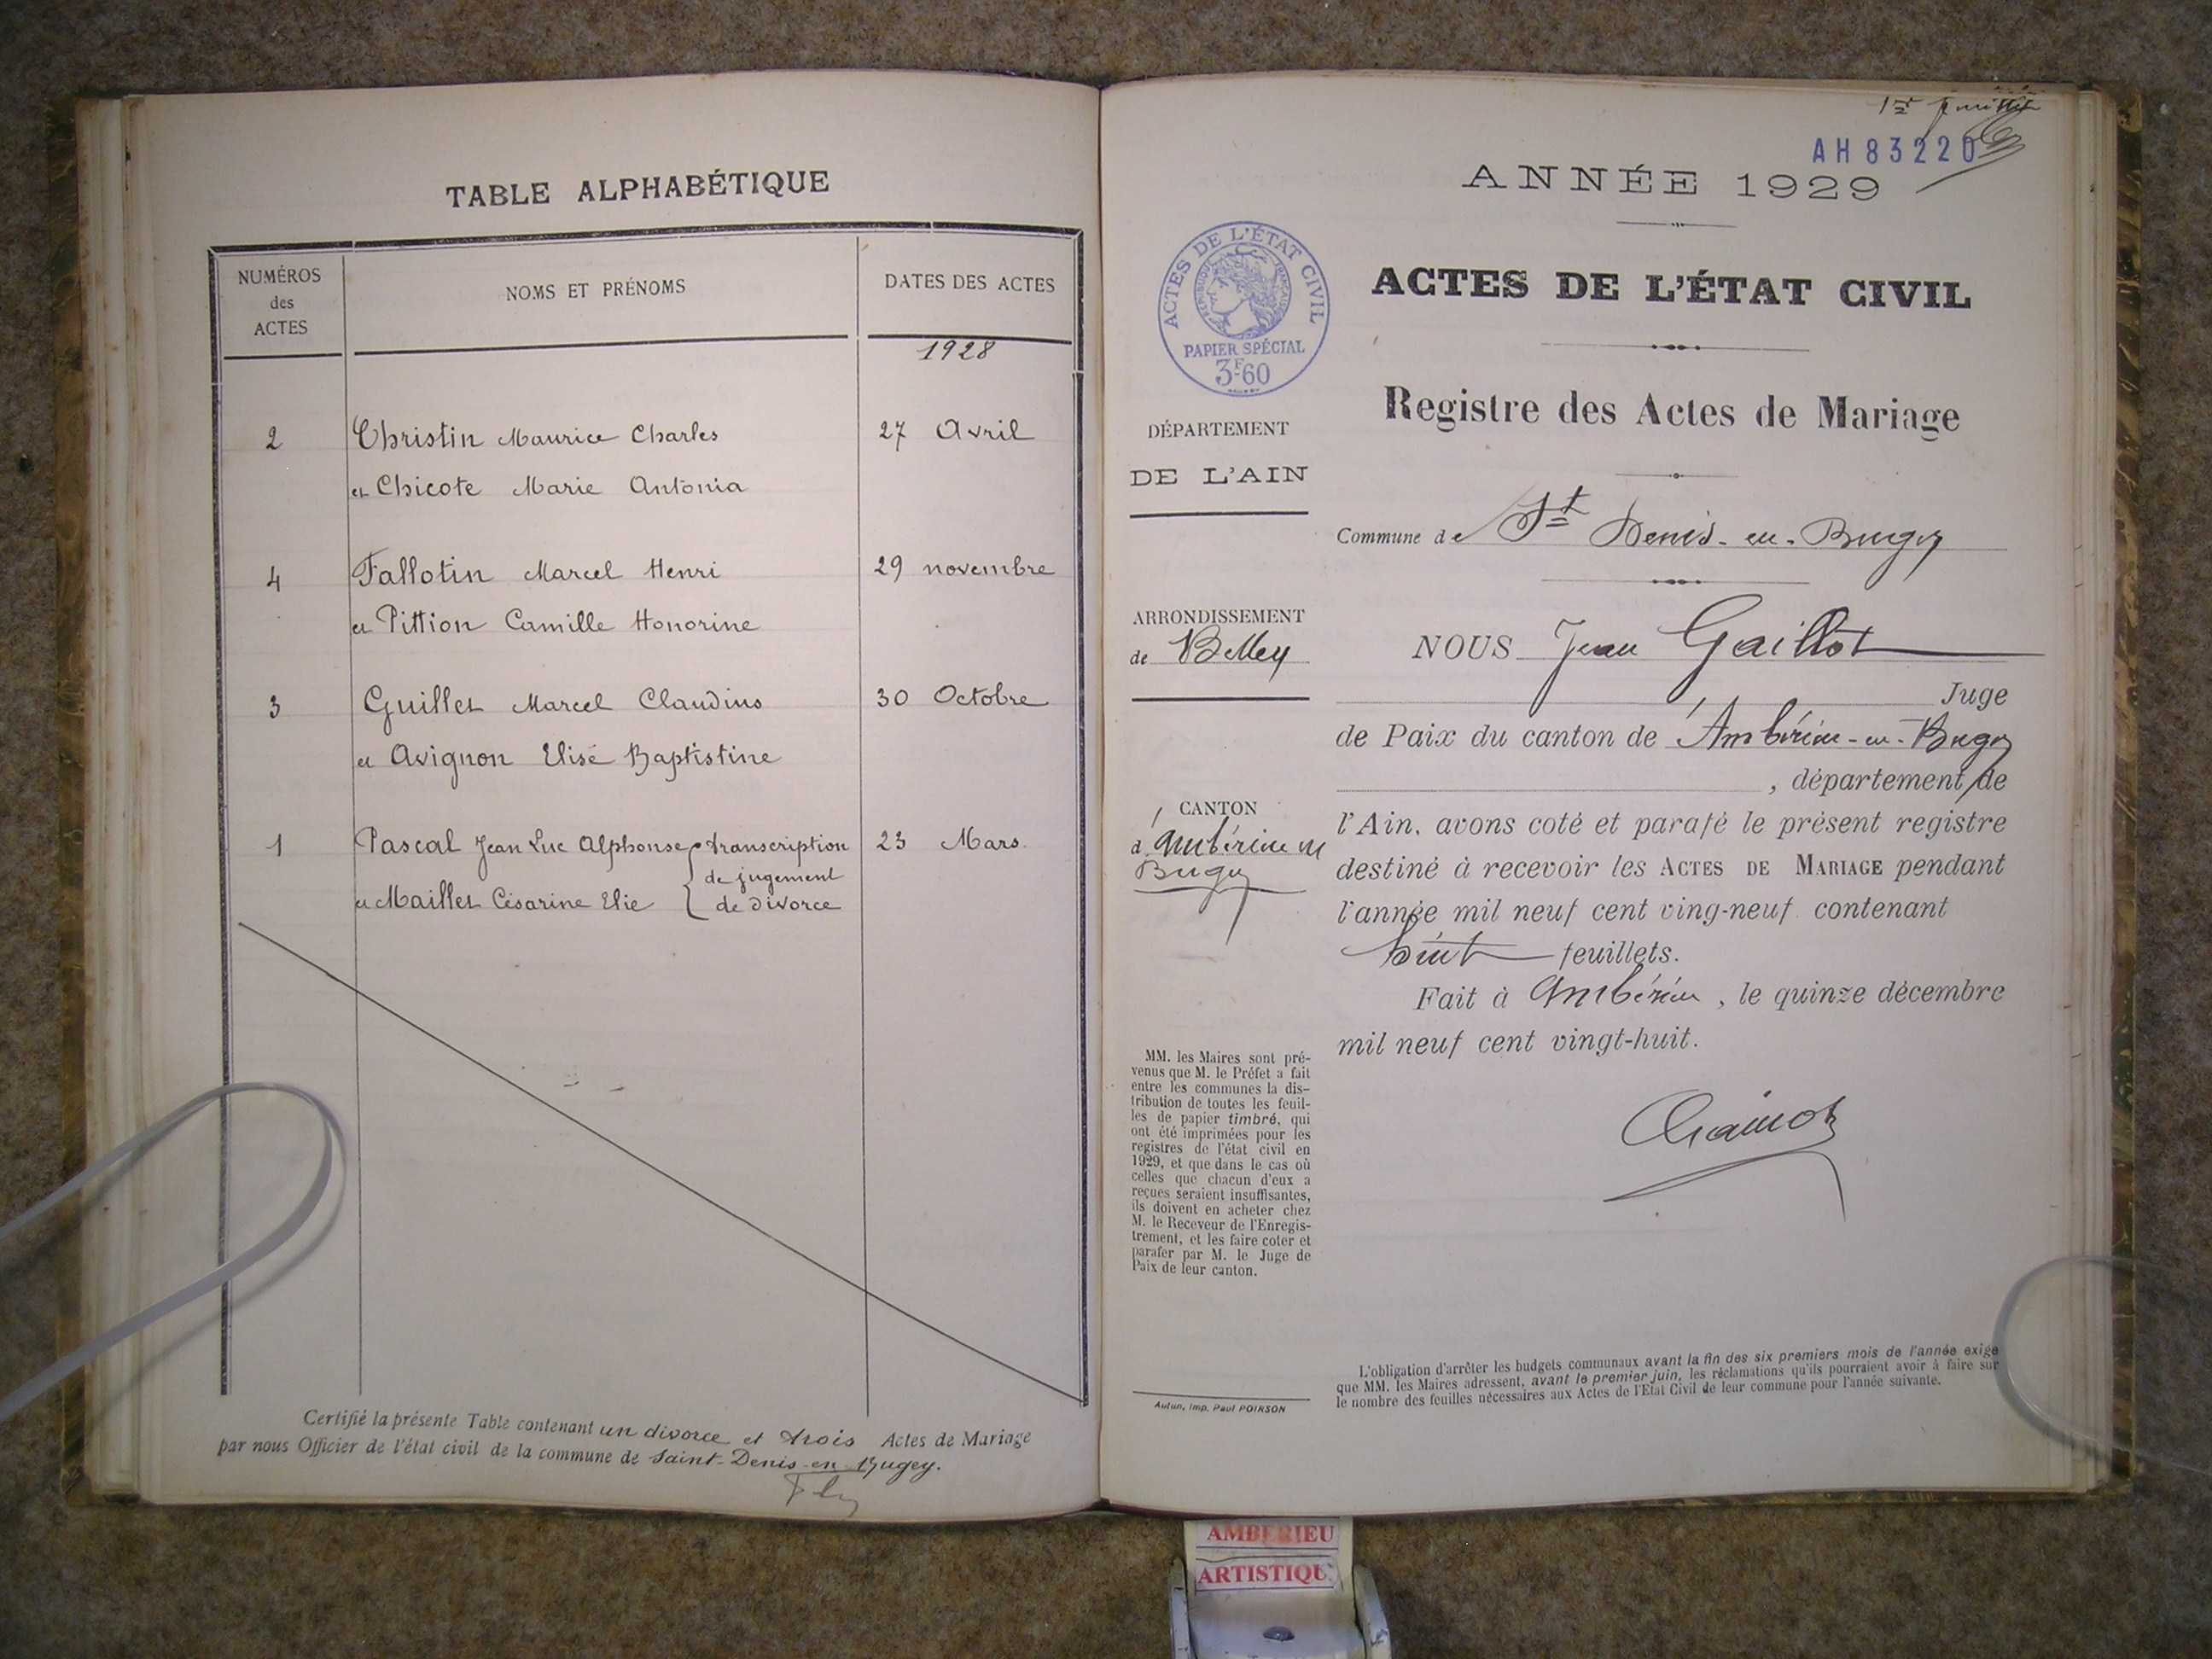 TABLE ALPHABÉTIQUE
NUMÉROS
des
ACTES
NOMS ET PRÉNOMS
DATES DES ACTES
1928
2 Christin Maurice Charles 27 Avril
et Chicote Marie Antonia
4 Fallotin Marcel Henri 29 novembre
et Pittion Camille Honorine
3 Guillet Marcel Claudius 30 Octobre
et Avignon Elise Baptistine
1 Pascal Jean Luc Alphonse transcription 23 Mars
de jugement
et Maillet Césarine Elie de divorce
Certifié la présente Table contenant un divorce et trois Actes de Mariage
par nous Officier de l'état civil de la commune de Saint-Denis-en-Bugey.
1er
AH83220
ANNÉE 1929
ACTES DE L'ÉTAT CIVIL
RÉPUBLIQUE FRANÇAISE
PAPIER SPÉCIAL
3F60
ACTES DE L'ÉTAT CIVIL
Registre des Actes de Mariage
DÉPARTEMENT
DE L'AIN
Commune de St Denis-en-Bugey
ARRONDISSEMENT
de Belley
NOUS Jean Gaillot
Juge
de Paix du canton de Ambérieu-en-Bugey
, département de
CANTON
d'Ambérieu en
Bugey
l'Ain, avons coté et parafé le présent registre
destiné à recevoir les ACTES DE MARIAGE pendant
l'année mil neuf cent ving-neuf contenant
huit feuillets.
Fait à Ambérieu, le quinze décembre
mil neuf cent vingt-huit.
MM. les Maires sont pré-
venus que M. le Préfet a fait
entre les communes la dis-
tribution de toutes les feuil-
les de papier timbré, qui
ont été imprimées pour les
registres de l'état civil en
1929, et que dans le cas où
celles que chacun d'eux a
reçues seraient insuffisantes,
ils doivent en acheter chez
M. le Receveur de l'Enregis-
trement, et les faire coter et
parafer par M. le Juge de
Paix de leur canton.
Autun, Imp. Paul POIRSON
L'obligation d'arrêter les budgets communaux avant la fin des six premiers mois de l'année exige
que MM. les Maires adressent, avant le premier juin, les réclamations qu'ils pourraient avoir à faire sur
le nombre des feuilles nécessaires aux Actes de l'Etat Civil de leur commune pour l'année suivante.
AMBERIEU
ARTISTIQU